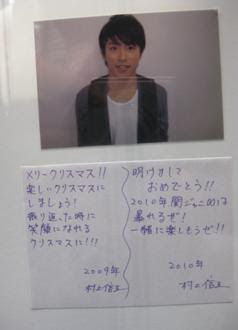 メリークリスマス!!
楽しいクリスマスに
しましょう!
振り返った時に
笑顔になれる
クリスマスに!!!
2009年
村上信五
明けまして
おめでとう!!
2010年関ジャニ∞は
暴れるぜ!
一緒に楽しもうぜ!!
2010年
村上信五